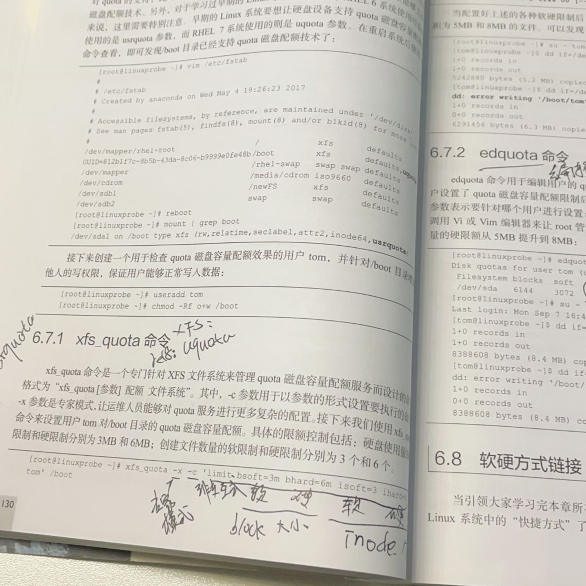 磁盘配额技术。另外，对于学习过早期的 Linux 系统
来说，这里需要特别注意。早期的 Linux 系统要想让硬盘设备支持 quota 磁盘容量
使用的是 usrquota 参数，而 RHEL 7 系统使用的则是 uquota 参数。在重启系统
命令查看，即可发现/boot 目录已经支持 quota 磁盘配额技术了：
[root@linuxprobe ~]# vim /etc/fstab
#
# /etc/fstab
# Created by anaconda on Wed May 4 19:26:23 2017
#
# Accessible filesystems, by reference, are maintained under '/dev/disk
# See man pages fstab(5), findfs(8), mount(8) and/or blkid(8) for more
#
/dev/mapper/rhel-root / xfs defaults
UUID=812b1f7c-8b5b-43da-8c06-b9999e0fe48b /boot xfs defaults,
/dev/mapper /rhel-swap swap swap defaults
/dev/cdrom /media/cdrom iso9660 defaults
/dev/sdb1 /newFS xfs defaults
/dev/sdb2 swap swap defaults
[root@linuxprobe ~]# reboot
[root@linuxprobe ~]# mount | grep boot
/dev/sda1 on /boot type xfs (rw,relatime,seclabel,attr2,inode64,usrquota
接下来创建一个用于检查 quota 磁盘容量配额效果的用户 tom，并针对/boot 目录
他人的写权限，保证用户能够正常写入数据：
[root@linuxprobe ~]# useradd tom
[root@linuxprobe ~]# chmod -Rf o+w /boot
XFS:
6.7.1 xfs_quota 命令
uquota
xfs_quota 命令是一个专门针对 XFS 文件系统来管理 quota 磁盘容量配额服务而设计的
格式为“xfs_quota [参数] 配额 文件系统”。其中，-c 参数用于以参数的形式设置要执行的
-x 参数是专家模式，让运维人员能够对 quota 服务进行更多复杂的配置。接下来我们使用 xfs
命令来设置用户 tom 对/boot 目录的 quota 磁盘容量配额。具体的限额控制包括：硬盘使用
限制和硬限制分别为 3MB 和 6MB；创建文件数量的软限制和硬限制分别为 3 个和 6 个。
[root@linuxprobe ~]# xfs_quota -x -c 'limit bsoft=3m bhard=6m isoft=3 ihard
tom' /boot
软 硬 软 硬
模式
block 大小
inode
130
当配置好上述的各种软硬限制后
积为 5MB 和 8MB 的文件。可以发现
[root@linuxprobe ~]# su - tom
[tom@linuxprobe ~]$ dd if=/de
1+0 records in
1+0 records out
5242880 bytes (5.2 MB) copied
[tom@linuxprobe ~]$ dd if=/de
dd: error writing '/boot/tom
1+0 records in
0+0 records out
6291456 bytes (6.3 MB) copied
6.7.2 edquota 命令
edquota 命令用于编辑用户的 q
户设置了 quota 磁盘容量配额限制后
参数表示要针对哪个用户进行设置
调用 Vi 或 Vim 编辑器来让 root 管
量的硬限额从 5MB 提升到 8MB：
[root@linuxprobe ~]# edquot
Disk quotas for user tom (
Filesystem blocks soft
/dev/sda 6144 3072
[root@linuxprobe ~]# su -
Last login: Mon Sep 7 16:4
[tom@linuxprobe ~]$ dd if=
1+0 records in
1+0 records out
8388608 bytes (8.4 MB) cop
[tom@linuxprobe ~]$ dd if
dd: error writing '/boot/
1+0 records in
0+0 records out
8388608 bytes (8.4 MB) co
6.8 软硬方式链接
当引领大家学习完本章所
Linux 系统中的“快捷方式”了